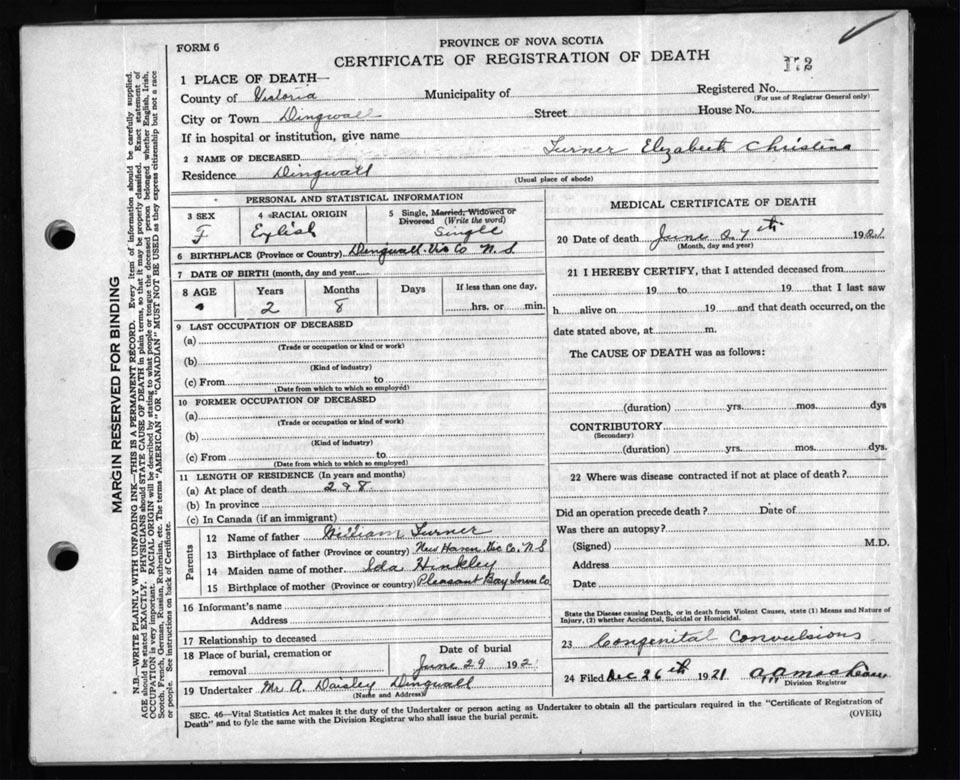 FORM 6
PROVINCE OF NOVA SCOTIA
CERTIFICATE OF REGISTRATION OF DEATH
172
1 PLACE OF DEATH—
County of Victoria Municipality of Registered No.
(For use of Registrar General only)
City or Town Dingwall Street House No.
If in hospital or institution, give name
2 NAME OF DECEASED Turner Elizabeth Christina
Residence Dingwall
(Usual place of abode)
PERSONAL AND STATISTICAL INFORMATION
3 SEX 4 RACIAL ORIGIN 5 Single, Married, Widowed or Divorced (Write the word)
F English Single
6 BIRTHPLACE (Province or Country) Dingwall Vic Co N.S
7 DATE OF BIRTH (month, day and year)
8 AGE Years Months Days If less than one day,
2 8 hrs. or min.
9 LAST OCCUPATION OF DECEASED
(a)
(Trade or occupation or kind or work)
(b)
(Kind of industry)
(c) From to
(Date from which to which so employed)
10 FORMER OCCUPATION OF DECEASED
(a)
(Trade or occupation or kind of work)
(b)
(Kind of industry)
(c) From to
(Date from which to which so employed)
11 LENGTH OF RESIDENCE (In years and months)
(a) At place of death 2 & 8
(b) In province
(c) In Canada (if an immigrant)
Parents
12 Name of father William Turner
13 Birthplace of father (Province or country) New Haven Vic Co. N.S
14 Maiden name of mother Ida Hinkley
15 Birthplace of mother (Province or country) Pleasant Bay Inver Co.
16 Informant's name
Address
17 Relationship to deceased
18 Place of burial, cremation or removal
Date of burial
June 29 192
19 Undertaker Mr A. Daisley Dingwall
(Name and Address)
MEDICAL CERTIFICATE OF DEATH
20 Date of death June 27th 1921
(Month, day and year)
21 I HEREBY CERTIFY, that I attended deceased from
19 to 19 that I last saw
h alive on 19 and that death occurred, on the
date stated above, at m.
The CAUSE OF DEATH was as follows:
(duration) yrs. mos. dys
CONTRIBUTORY
(Secondary)
(duration) yrs. mos. dys.
22 Where was disease contracted if not at place of death?
Did an operation precede death? Date of
Was there an autopsy?
(Signed) M.D.
Address
Date
State the Disease causing Death, or in death from Violent Causes, state (1) Means and Nature of
Injury, (2) whether Accidental, Suicidal or Homicidal.
23 Congenital Convulsions
24 Filed Dec 26th 1921
Division Registrar
SEC. 46—Vital Statistics Act makes it the duty of the Undertaker or person acting as Undertaker to obtain all the particulars required in the "Certificate of Registration of
Death" and to fyle the same with the Division Registrar who shall issue the burial permit.
(OVER)
MARGIN RESERVED FOR BINDING
N.B.—WRITE PLAINLY WITH UNFADING INK—THIS IS A PERMANENT RECORD. Every item of information should be carefully supplied.
AGE should be stated EXACTLY. PHYSICIANS should STATE CAUSE OF DEATH in plain terms, so that it may be properly classified. Exact statement of
OCCUPATION is very important. RACIAL ORIGIN will be described by stating to what people or tongue the deceased person belonged, whether English, Irish,
Scotch, French, German, Russian, Ruthenian, etc. The terms "AMERICAN" OR "CANADIAN" MUST NOT BE USED as they express citizenship but not a race
or people. See instructions on back of Certificate.